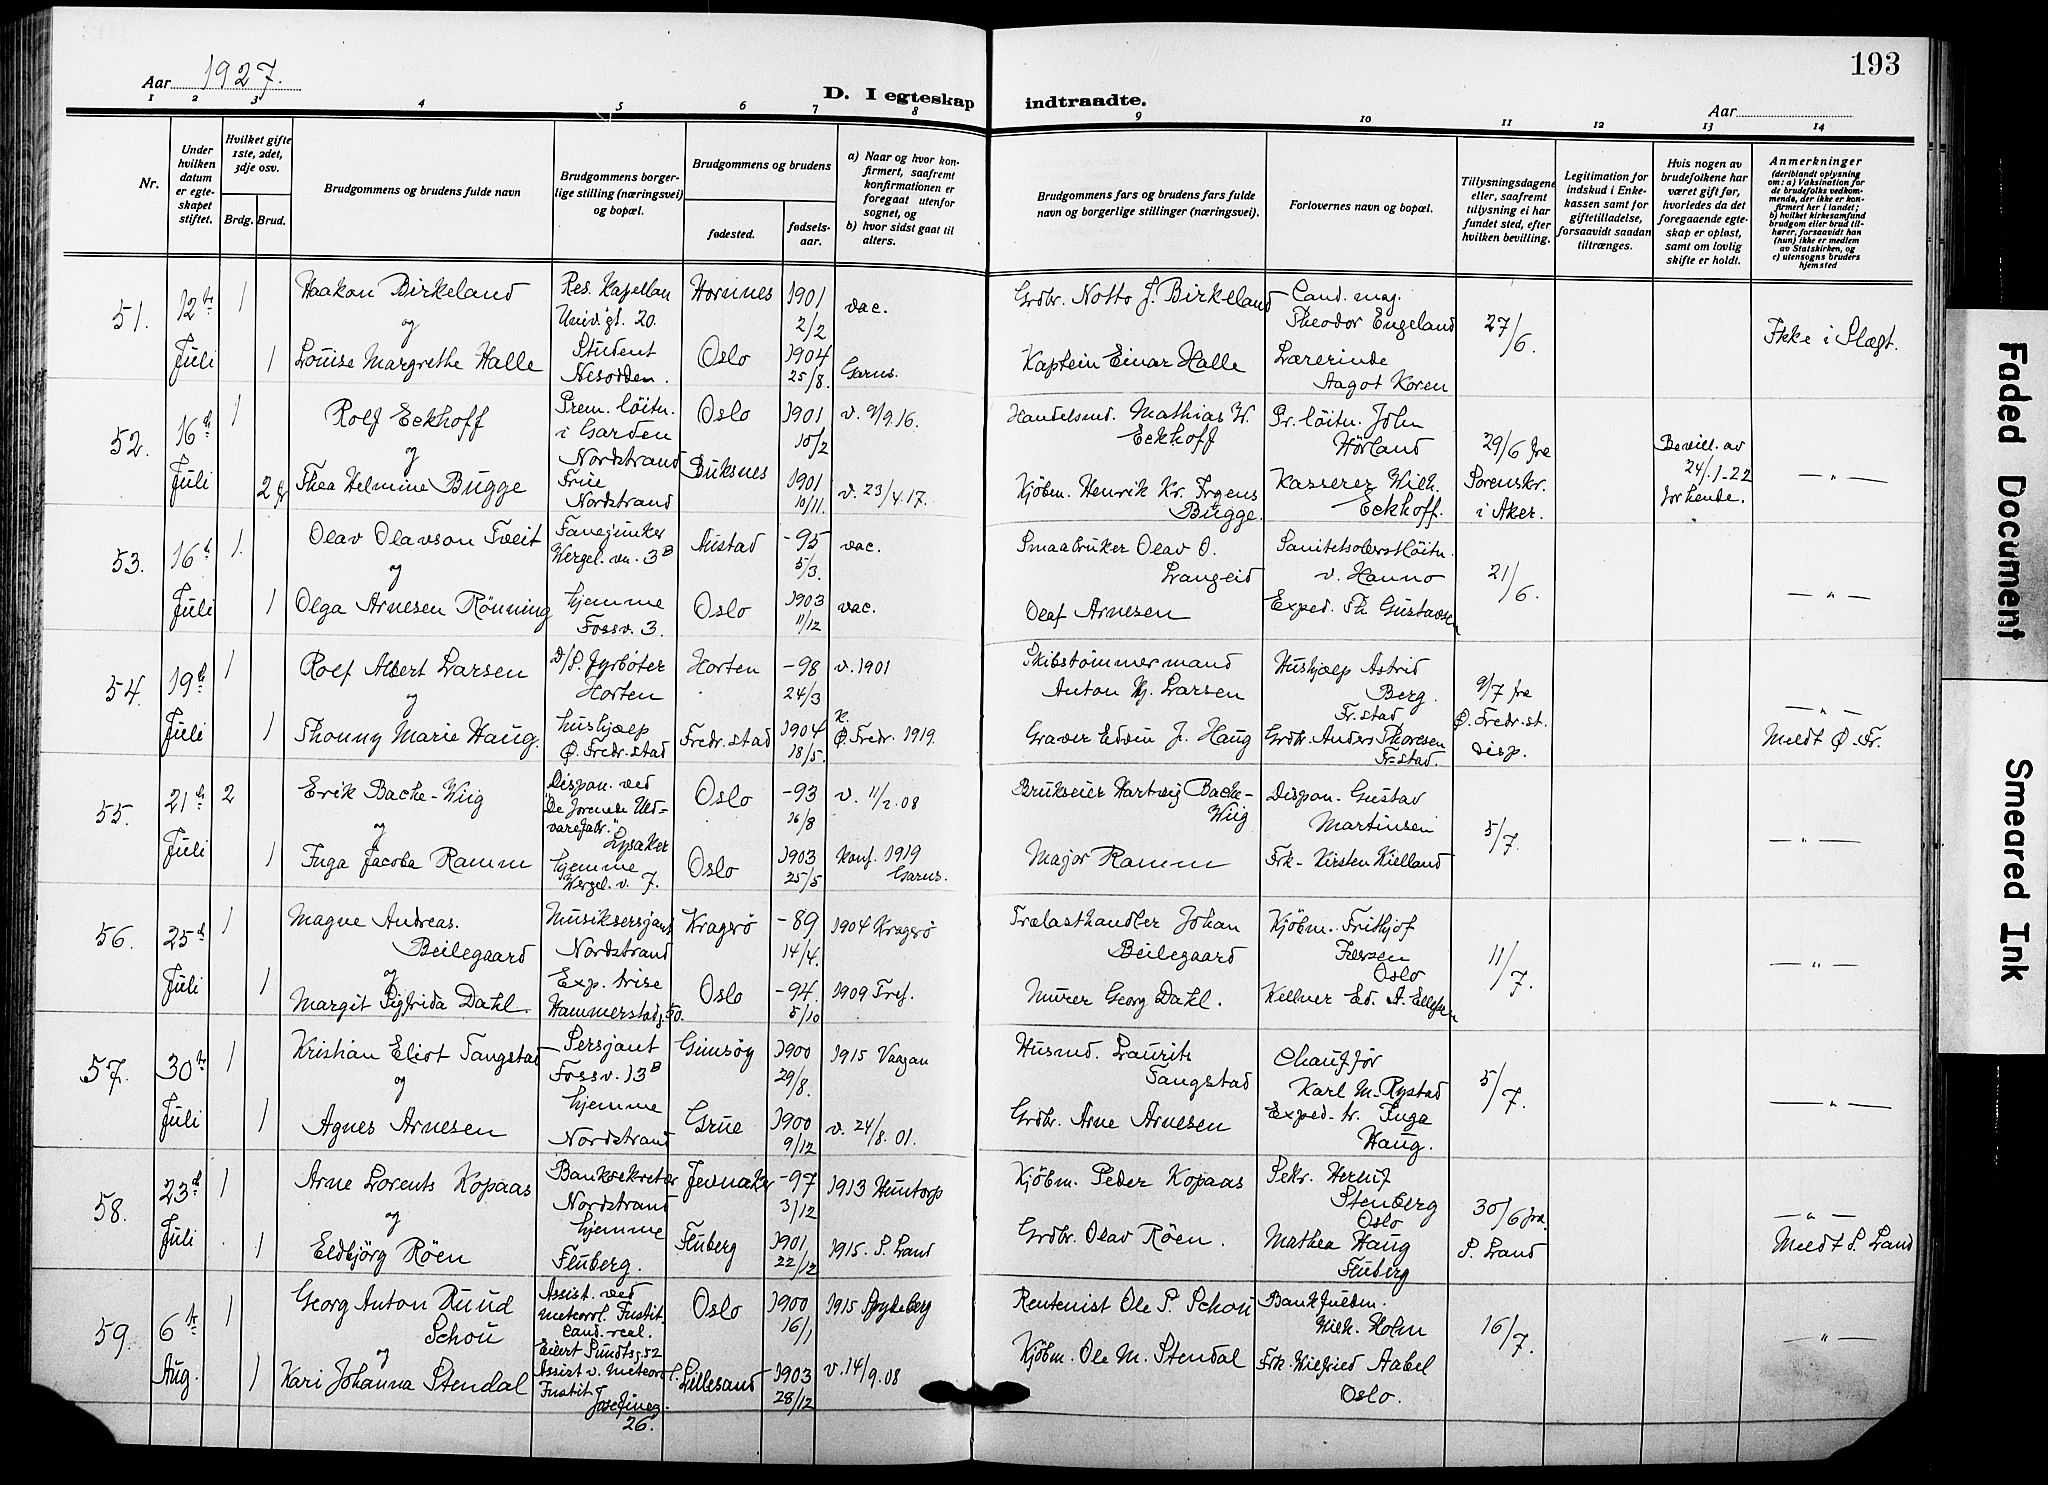 193
Aar 1927.
D. I egteskap indtraadte.
Aar
1 2 3 4 5 6 7 8 9 10 11 12 13 14
Nr.
Under hvilken datum er egteskapet stiftet.
Hvilket gifte 1ste, 2det, 3dje osv.
Brdg. Brud.
Brudgommens og brudens fulde navn
Brudgommens borgerlige stilling (næringsvei) og bopæl.
Brudgommens og brudens
fødested.
fødselsaar.
a) Naar og hvor konfirmert, saafremt konfirmationen er foregaat utenfor sognet, og
b) hvor sidst gaat til alters.
Brudgommens fars og brudens fars fulde navn og borgerlige stillinger (næringsvei).
Forlovernes navn og bopæl.
Tillysningsdagene eller, saafremt tillysning ei har fundet sted, efter hvilken bevilling.
Legitimation for indskud i Enkekassen samt for giftetilladelse, forsaavidt saadan tiltrænges.
Hvis nogen av brudefolkene har været gift før, hvorledes da det foregaaende egteskap er opløst, samt om lovlig skifte er holdt.
Anmerkninger
(deriblandt oplysning om: a) Vaksination for de brudefolks vedkommende, der ikke er konfirmert her i landet; b) hvilket kirkesamfund brudgom eller brud tilhører, forsaavidt han (hun) ikke er medlem av Statskirken, og c) utensogns bruders hjemsted
51. 12te Juli 1 Haakon Birkeland Res. Kapellan Univ. gt. 20. Hornnes 1901 2/2 vac. Grdbr. Notto J. Birkeland Cand. mag. Theodor Engeland 27/6. Ikke i Slægt.
og
1 Louise Margrethe Halle Student Nesodden. Oslo 1904 25/8. Garns. Kaptein Einar Halle Lærerinde Aagot Koren
52. 16de Juli 1 Rolf Eckhoff Prem. löitn. i Garden Nordstrand Oslo 1901 10/2 v. 9/9.16. Handelsmd. Mathias W. Eckhoff Pr. löitn. John Hörland 29/6 fra Sorenskr. i Aker. Bevill. av 24/1-22 for hende. — " —
og
2 Thea Helmine Bugge Frue Nordstrand Buksnes 1901 10/11. v. 23/4.17. Kjöbm. Henrik Kr. Irgens Bugge. Kasserer Wilh. Eckhoff.
53. 16de Juli 1. Olav Olavson Tveit Fanejunker Wergel. vn. 3B Austad -95 5/3. vac. Smaabruker Olav O. Langeid Sanitetsoberstlöitn. v. Hanno 21/6. — " —
og
1 Olga Arnesen Rönning hjemme Fossv. 3. Oslo 1903 11/12 vac. Olaf Arnesen Exped. Th. Gustavsen
54. 19de Juli 1 Rolf Albert Larsen D/S. Fyrböter Horten Horten -98 24/3 v. 1901 Skibstömmermand Anton Hj. Larsen Hushjælp Astrid Berg. Fr.stad 9/7 fra Ø. Fredr.st. disp. — " —
og
1 Thonny Marie Haug. hushjælp Ø. Fredr.stad Fredr.stad 1904 18/5. K. Ø. Fredr. 1919. Graver Edvin J. Haug Grdbr. Anders Thoresen Fr.stad. Meldt Ø. Fr.
55. 21de Juli 2 Erik Bache-Wiig Dispon. ved "De forenede Uldvarefabr." Lysaker Oslo -93 26/8 v. 11/2.08 Brukseier Hartvig Bache-Wiig Dispon. Gustav Martinsen 5/7. — " —
og
1 Inga Jacoba Ramm hjemme Wergel. v. 7. Oslo 1903 25/5 Konf. 1919 Garns. Major Ramm Frk. Kirsten Kielland
56. 25de Juli 1 Magne Andreas. Beilegaard Musiksersjant Nordstrand Kragerö -89 14/4. 1904 Kragerö Trælasthandler Johan Beilegaard Kjöbm. Frithjof Oslo 11/7. — " —
og
1 Margit Sigfrida Dahl Exp. trise Hammerstadg. 50. Oslo -94. 5/10 1909 Tref. Murer Georg Dahl. Kellner Ed. A. Ellefsen
57. 30te Juli 1 Kristian Eliot Tangstad Sersjant Fossv. 13B Gimsöy 1900 29/8. 1915 Vaagan Husmd. Laurits Tangstad Chauffør Karl M. Rystad 5/7. — " —
og
1 Agnes Arnesen hjemme Nordstrand Grue 1900 9/12 v. 24/8.01. Grdbr. Arne Arnesen Exped. tr. Inga Haug.
58. 23de Juli 1 Arne Lorents Kopaas Banksekretær Nordstrand Jevnaker -97 3/12 1913 Huntorp Kjöbm. Peder Kopaas Sekr. Herluf Stenberg Oslo 30/6 fra S. Land — " —
og
1 Eldbjörg Röen hjemme Fluberg. Fluberg 1901 22/12 1915. S. Land Grdbr. Olav Röen. Mathea Haug Fluberg Meldt S. Land
59. 6te Aug. 1 Georg Anton Ruud Schou Assist. ved meteorol. Instit. Cand. real. Eilert Sundtsg. 52 Oslo 1900 16/1 1915 Spydeberg Rentenist Ole P. Schou Bankfuldm. Wilh. Holm 16/7. — " —
og
1 Kari Johanna Stendal Assist v. meteorol. Instit. Josefineg. 26. Lillesand 1903 28/12 v. 14/9.08 Kjöbm. Ole M. Stendal Frk. Wilfried Aabel Oslo.
Faded Document
Smeared Ink